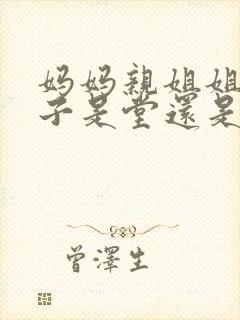 妈妈親姐姐
子是堂還是
曾澤生